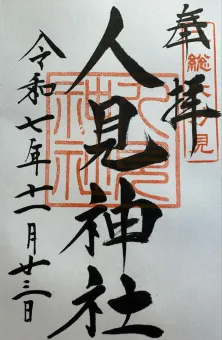 奉拝
人見神社
令和七年十一月廿三日